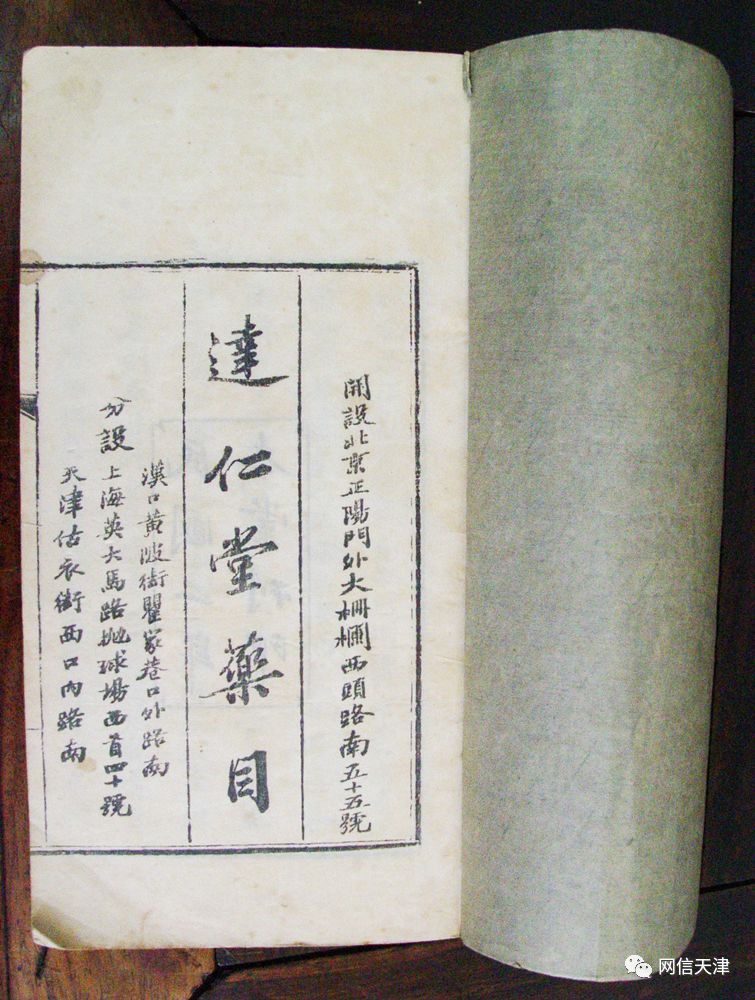 開設北京正陽門外大柵欄西頭路南五十五號
達仁堂藥目
漢口黃陂街瞿家巷口外路南
分設上海英大馬路拋球場西首四十號
天津估衣街西口內路南
网信天津